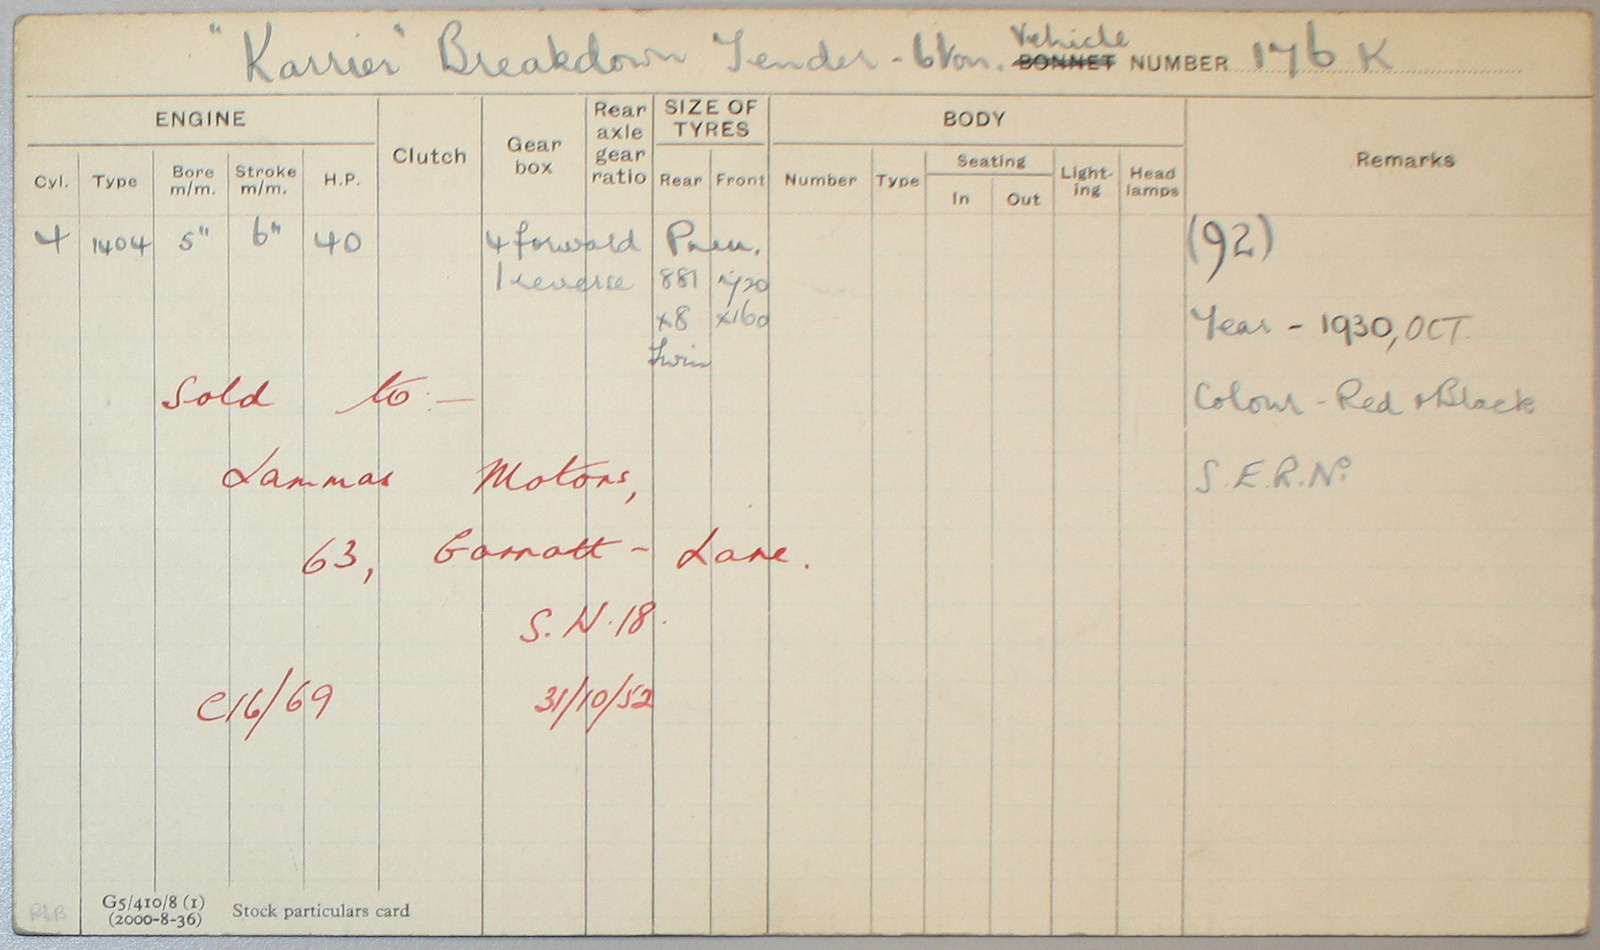 "Karrier" Breakdown Tender - 6 ton. Vehicle BONNET NUMBER 176 K
ENGINE Clutch Gear box Rear axle gear ratio SIZE OF TYRES BODY Remarks
Cyl. Type Bore m/m. Stroke m/m. H.P. Rear Front Number Type Seating In Out Light-ing Head lamps
4 1404 5" 6" 40 4 forward Pneu. (92)
1 reverse 881
x8 x160
Twin
Year - 1930, OCT.
Colour - Red & Black
S.E.R. No
Sold to :-
Lammas Motors,
63, Garratt - Lane.
S.W.18.
C16/69 31/10/52
G5/410/8 (1)
(2000-8-36)
Stock particulars card